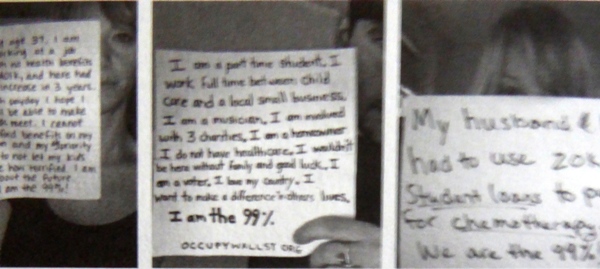 age 37. I am
working at a job
no health benefits
401K, and have had
increase in 3 years.
payday I hope I
be able to make
meet. I cannot
find benefits on my
and my priority
to not let my kids
how terrified I am
about the future.
I am the 99%!
I am a part time student. I
work full time between child
care and a local small business.
I am a musician, I am involved
with 3 charities, I am a homeowner
I do not have healthcare, I wouldn't
be here without family and good luck. I
am a voter. I love my country. I
want to make a difference in others lives.
I am the 99%
OCCUPYWALLST.ORG
My husband &
had to use 20K
Student loans to p
for chemotherapy
We are the 99%